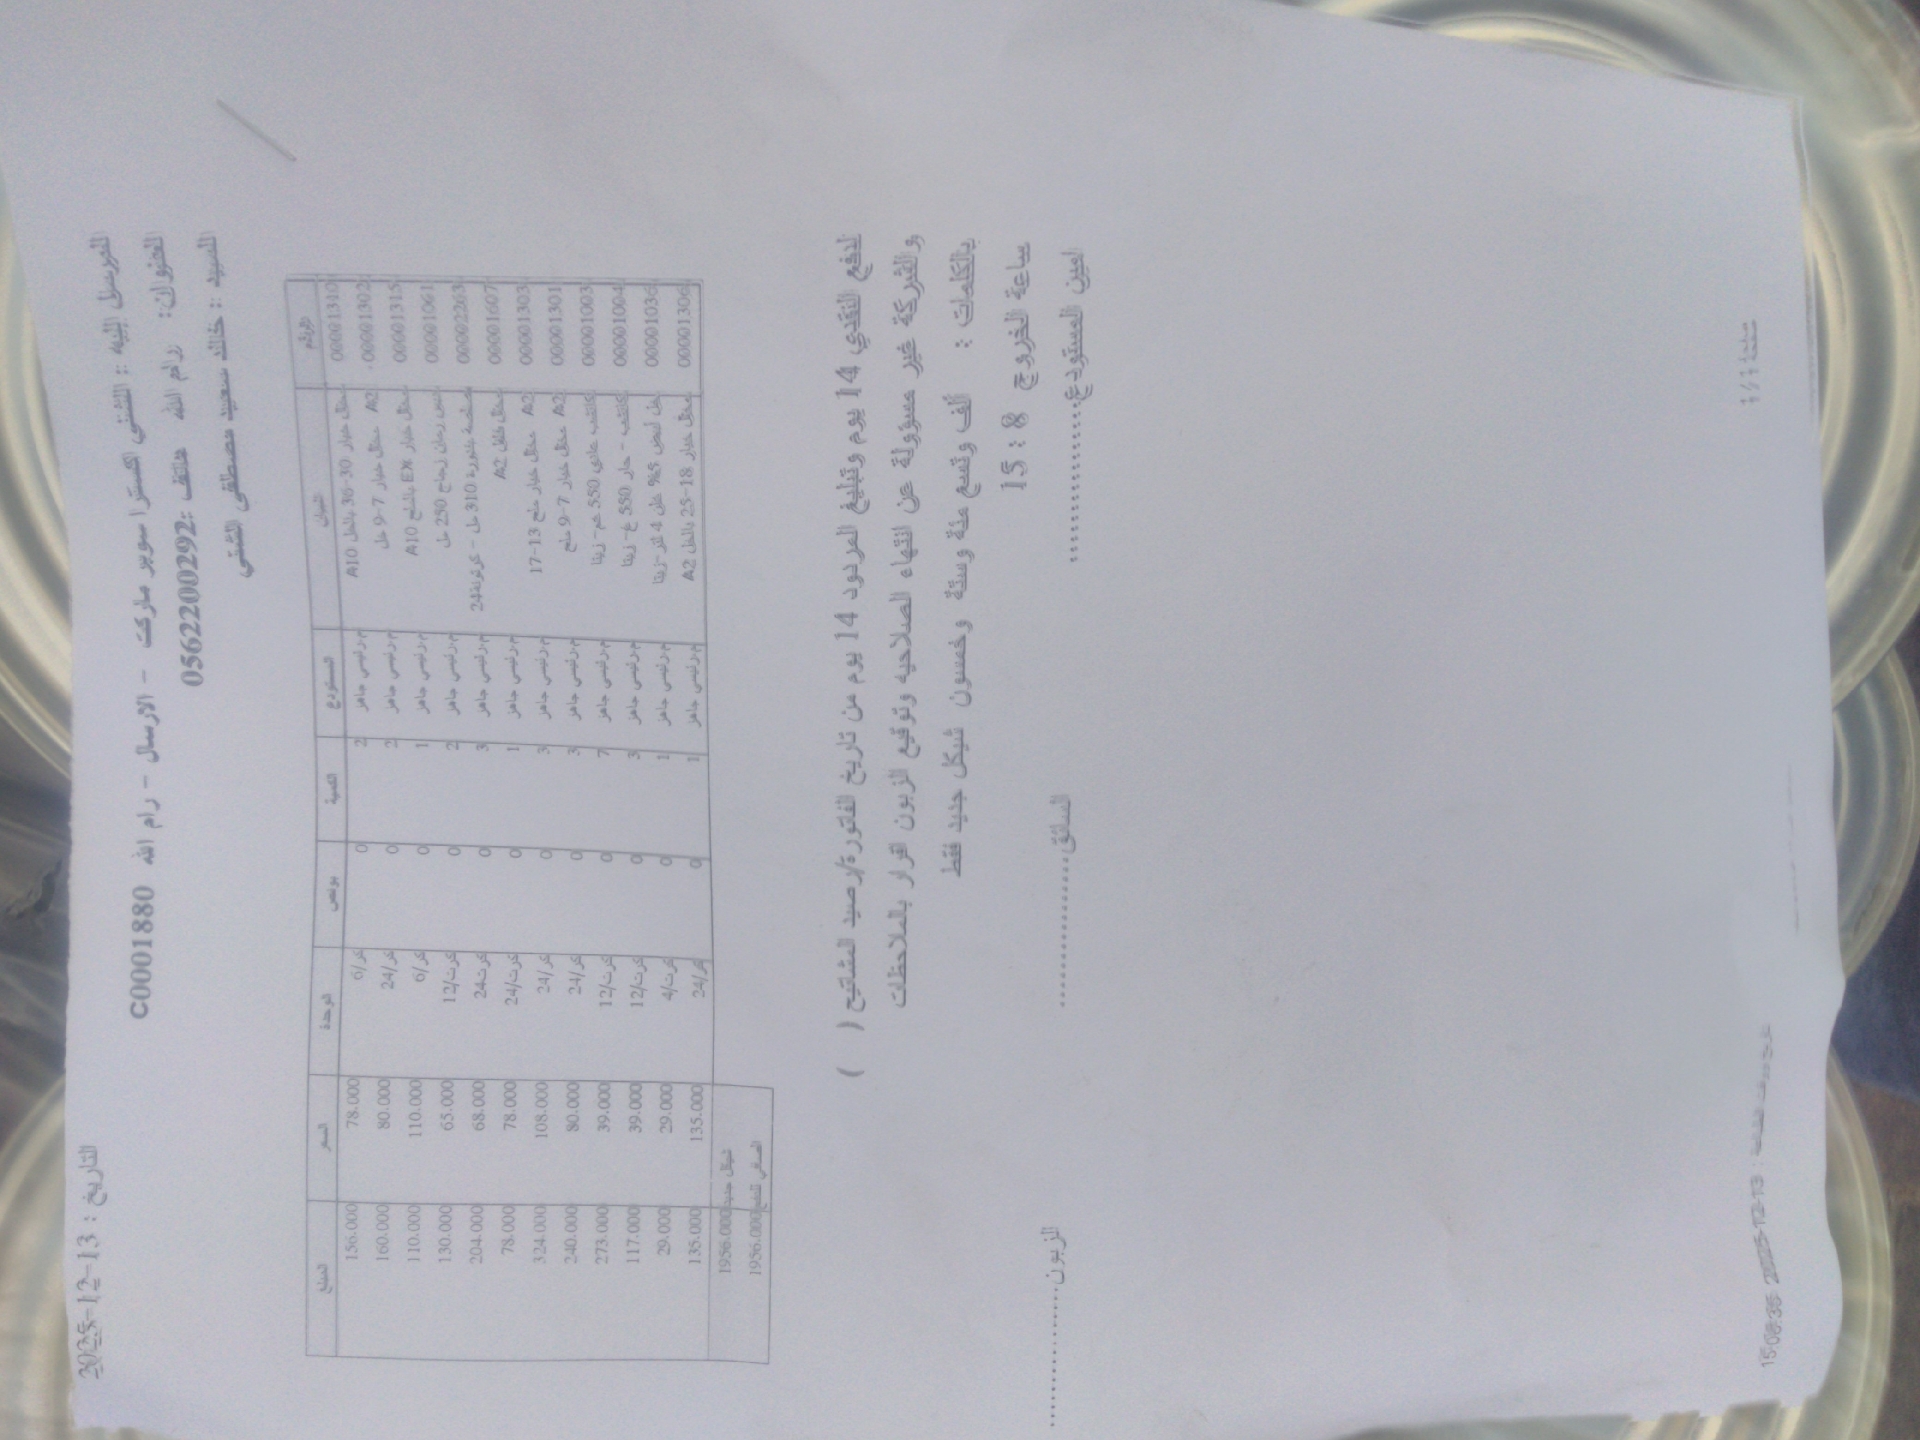 المرسل اليه : الثلثي اكسترا سوبر ماركت - الارسال - رام الله C0001880 التاريخ : 2025-12-13
العنوان: رام الله هاتف :0562200292
السيد : خالد سعيد مصطفى الثلثي
الرقم البيان المستودع الكمية بونص الوحدة السعر المبلغ
00001310 مخلل خيار 30-36 بالخل A10 م.رئيسي جاهز 2 0 كر/6 78.000 156.000
00001302 A2 مخلل خيار 7-9 خل م.رئيسي جاهز 2 0 كر/24 80.000 160.000
00001315 مخلل خيار EX بالملح A10 م.رئيسي جاهز 1 0 كر/6 110.000 110.000
00001061 دبس رمان زجاج 250 مل م.رئيسي جاهز 2 0 كرت/12 65.000 130.000
00002263 صلصة بندورة 310 مل - كرتونة24 م.رئيسي جاهز 3 0 كرت24 68.000 204.000
00001607 مخلل فلفل A2 م.رئيسي جاهز 1 0 كرت/24 78.000 78.000
00001303 A2 مخلل خيار ملح 13-17 م.رئيسي جاهز 3 0 كر/24 108.000 324.000
00001301 A2 مخلل خيار 7-9 ملح م.رئيسي جاهز 3 0 كر/24 80.000 240.000
00001003 كاتشب عادي 550 غم- زينا م.رئيسي جاهز 7 0 كرت/12 39.000 273.000
00001004 كاتشب - حار 550 غ- زينا م.رئيسي جاهز 3 0 كرت/12 39.000 117.000
00001036 خل ابيض 5% خان 4 لتر-زينا م.رئيسي جاهز 1 0 كرت/4 29.000 29.000
00001306 مخلل خيار 18-25 بالخل A2 م.رئيسي جاهز 1 0 كر/24 135.000 135.000
شيكل جديد 1956.000
الصافي للدفع 1956.000
لدفع النقدي 14 يوم وتبليغ المردود 14 يوم من تاريخ الفاتورة/رصيد المشاتيح ( )
والشركة غير مسؤولة عن انتهاء الصلاحيه وتوقيع الزبون اقرار بالملاحظات
بالكلمات : ألف وتسع مئة وستة وخمسون شيكل جديد فقط
ساعة الخروج 8 : 15
امين المستودع............... السائق............... الزبون...............
صفحة 1/1 15:08:35 2025-12-13 :